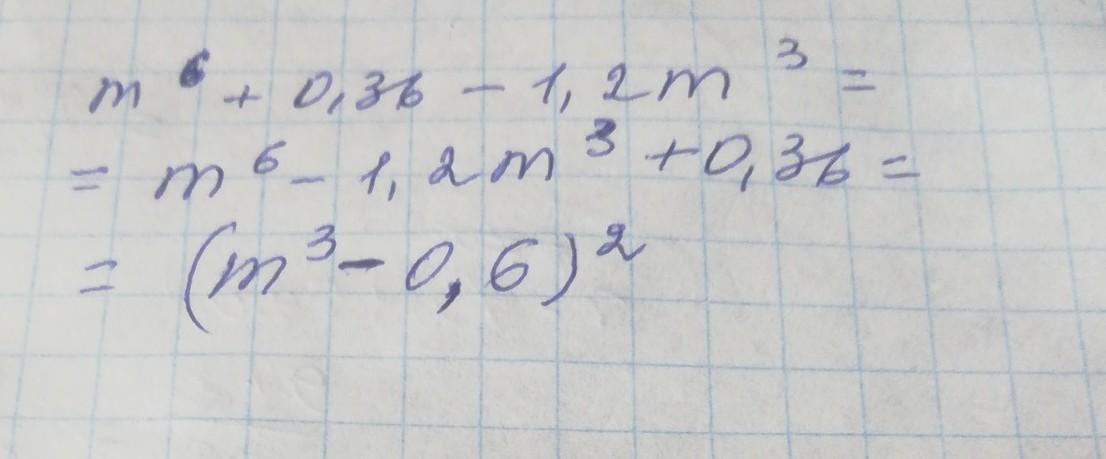 m⁶ + 0,36 - 1,2m³ =
= m⁶ - 1,2m³ + 0,36 =
= (m³ - 0,6)²